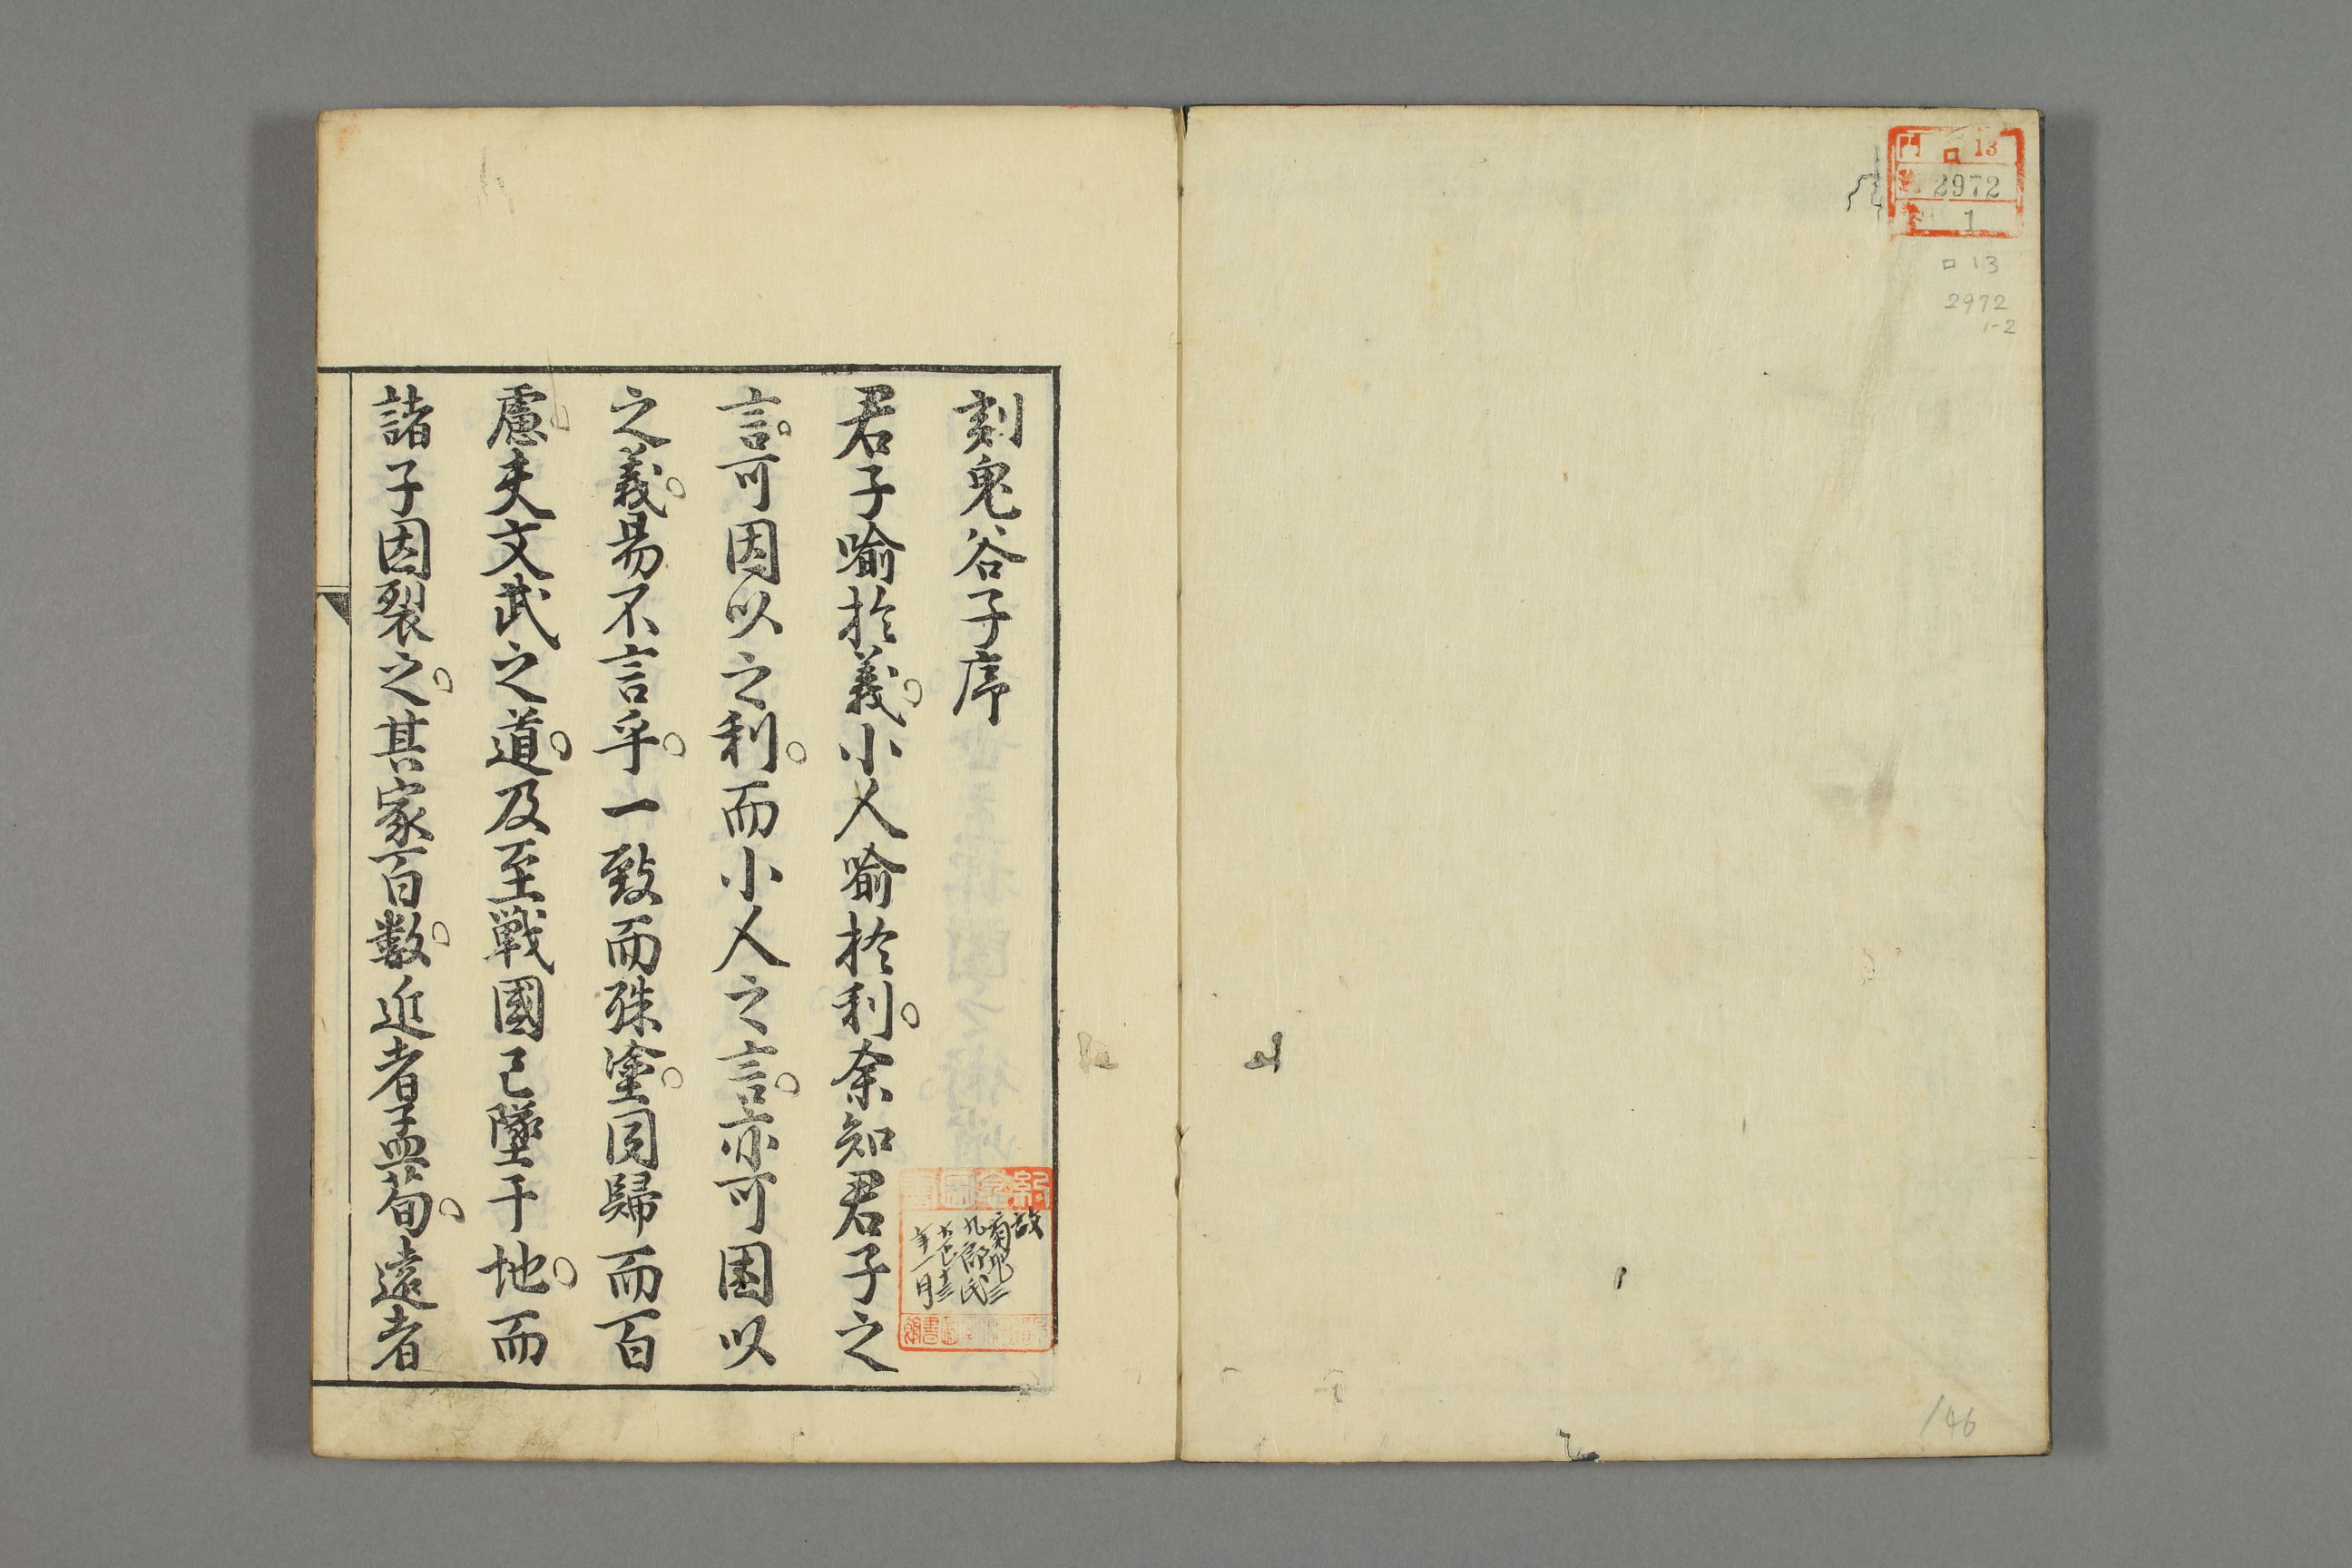 門 ロ 13
2972
1
ロ 13
2972
1-2
146
刻鬼谷子序
君子喻於義。小人喻於利。余知君子之
言。可因以之利。而小人之言。亦可因以
之義。易不言乎。一致而殊塗。同歸而百
慮。夫文武之道。及至戰國已墜于地。而
諸子因裂之。其家百數。近者孟荀。遠者
故
九郎氏
月